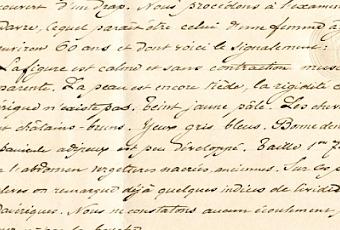 couvert d'un drap. Nous procédons à l'examen
davre, lequel paraît être celui d'une femme â
environ 60 ans et dont voici le signalement:
La figure est calme et sans contraction muscu
parente. La peau est encore tiède, la rigidité c
érique n'existe pas. Teint jaune pâle. Les cheve
nt châtains-bruns. Yeux gris bleus. Bonne den
pannicule adipeux est peu développé. Taille 1m
l'abdomen vergetures nacrées anciennes. Sur les p
dres on remarque déjà quelques indices de livide
davériques. Nous ne constatons aucun écoulement